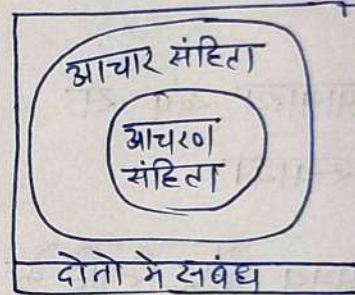 आचार संहिता
आचरण
संहिता
दोनो मे संबंध